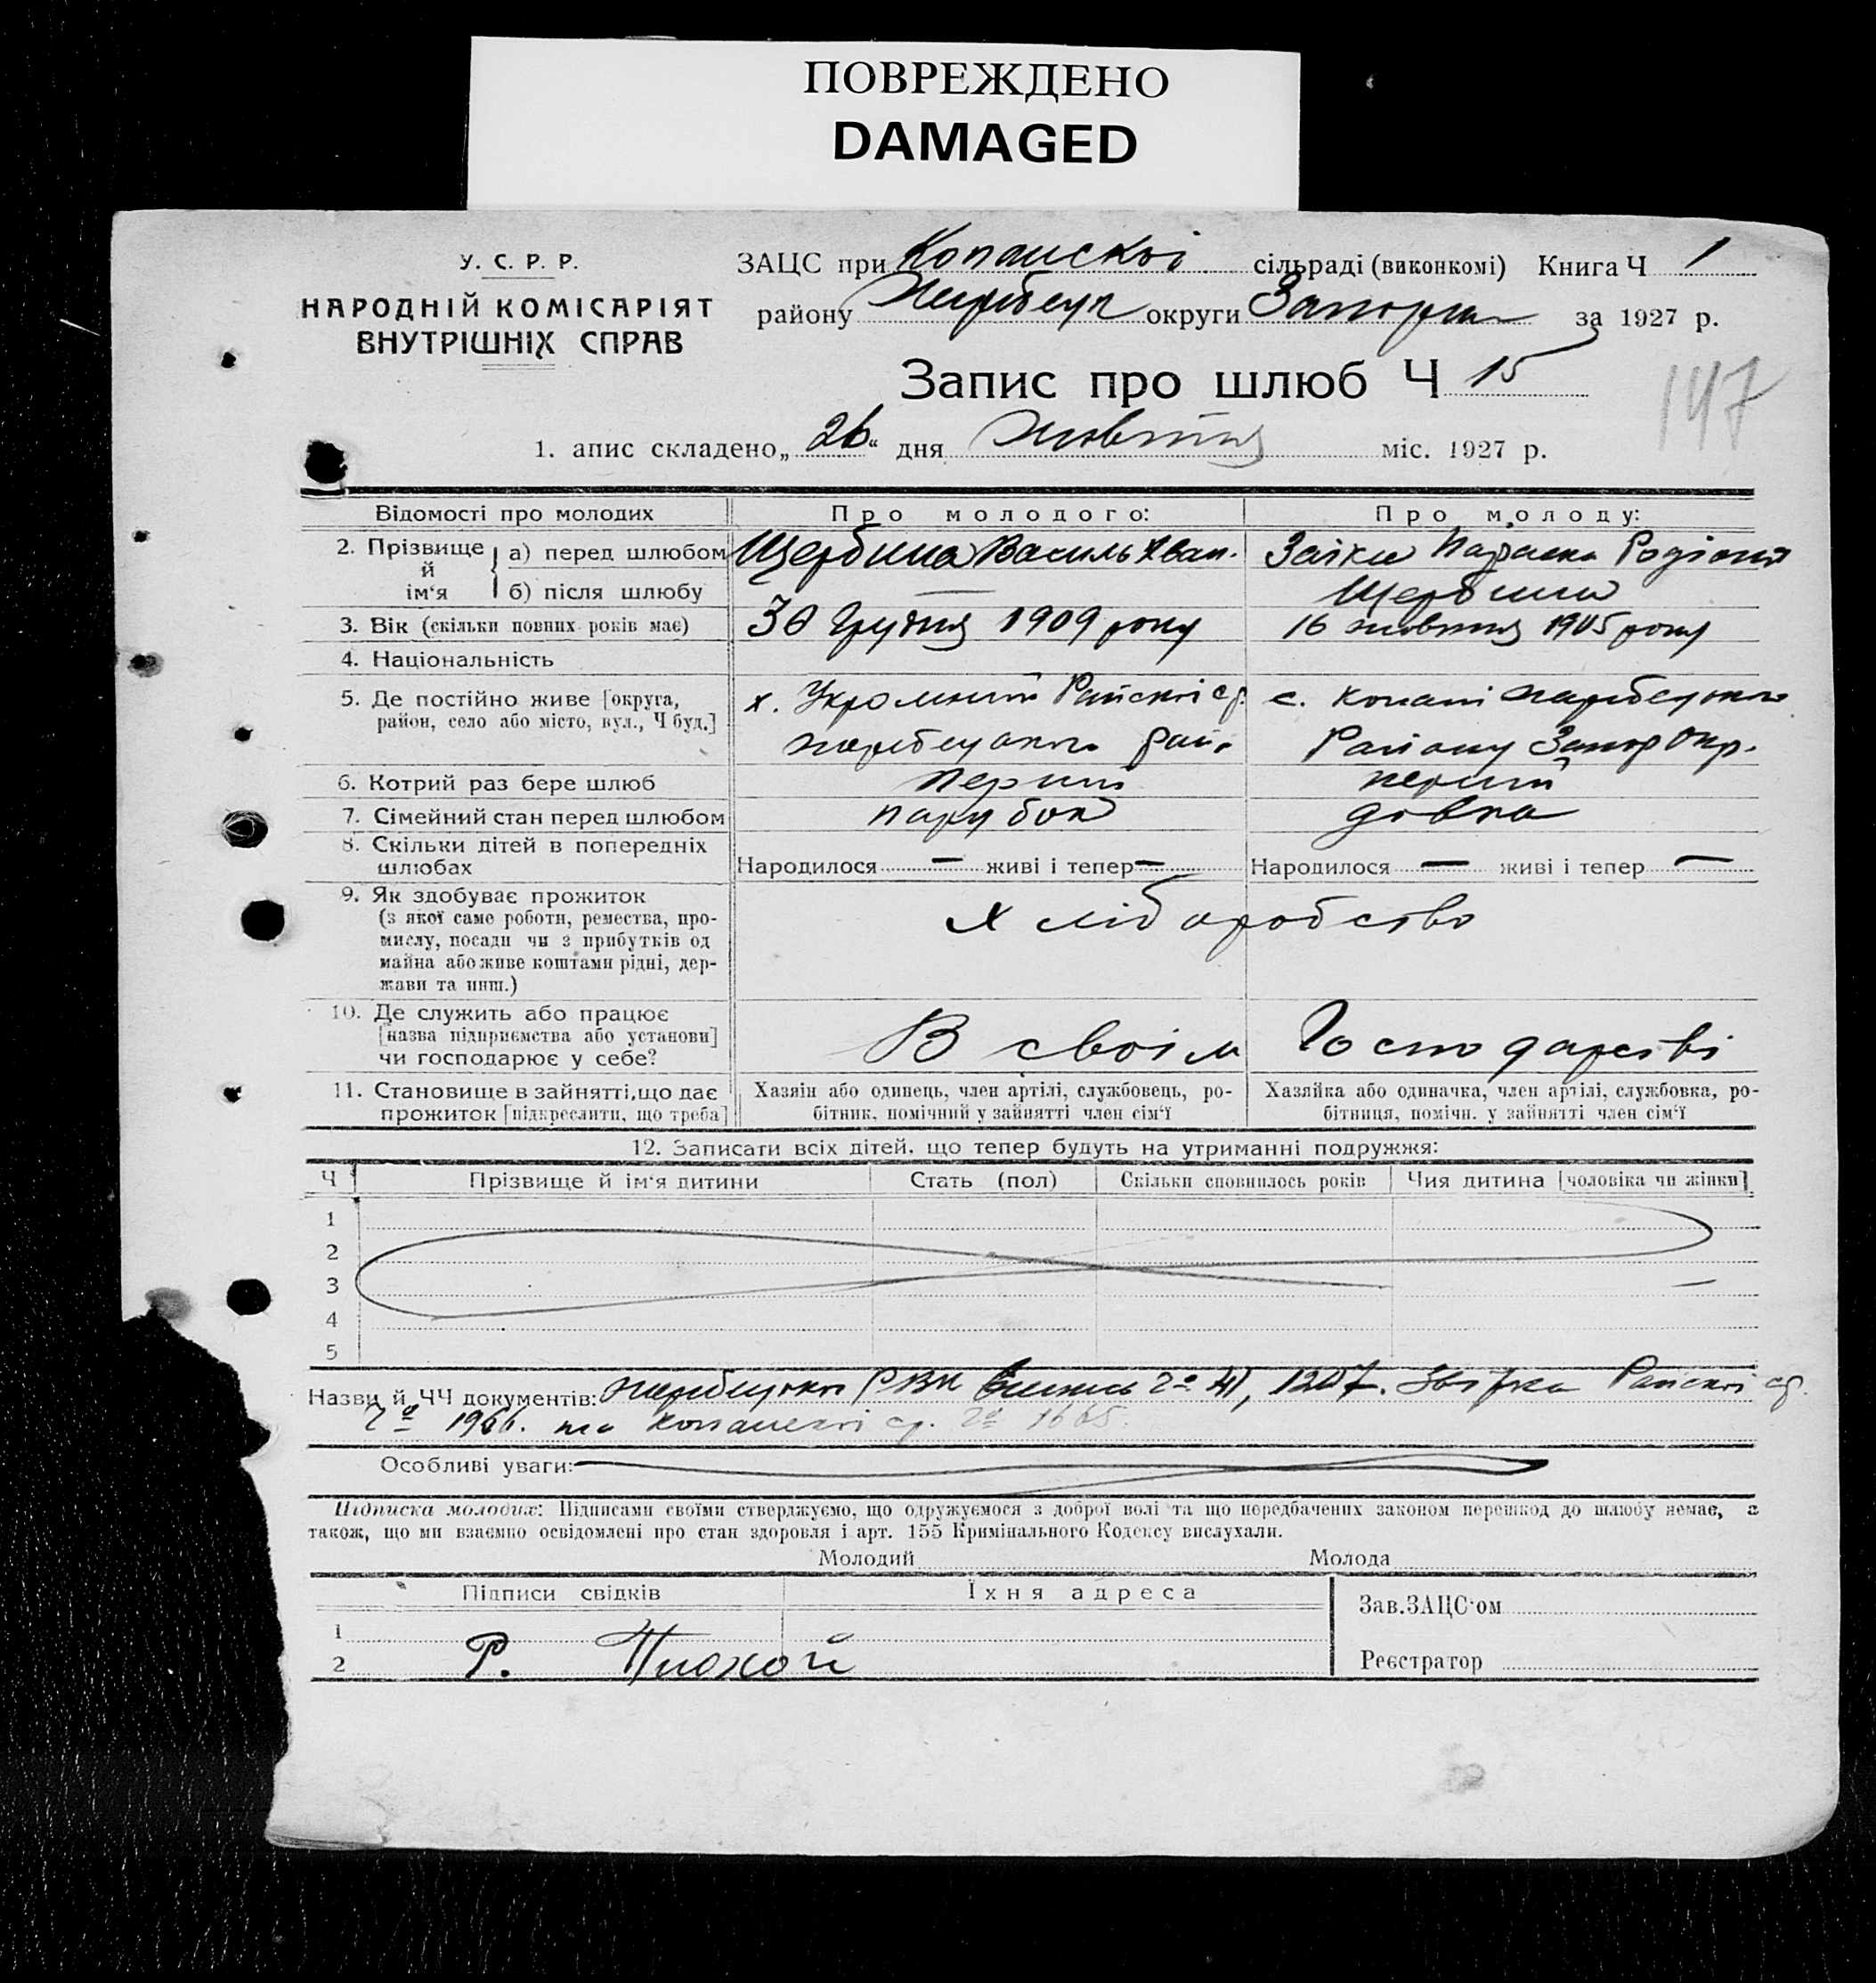 ПОВРЕЖДЕНО
DAMAGED
У. С. Р. Р.
НАРОДНІЙ КОМІСАРІЯТ
ВНУТРІШНІХ СПРАВ
ЗАЦС при Копанскої сільраді (виконкомі) Книга Ч 1
району округи за 1927 р.
Запис про шлюб Ч 15
147
1. апис складено „26“ дня Жовтня міс. 1927 р.
Відомості про молодих Про молодого: Про молоду:
2. Прізвище й ім‘я а) перед шлюбом Щербина Василь Іван. Параска
б) після шлюбу — Щербина
3. Вік (скільки повних років має) 30 Грудня 1909 року 16 жовтня 1905 року
4. Національність
5. Де постійно живе [округа, х. Райскої ср. с. Копані
район, село або місто, вул., Ч буд.] Району Запор Окр.
6. Котрий раз бере шлюб перший перший
7. Сімейний стан перед шлюбом парубок дівка
8. Скільки дітей в попередніх
шлюбах Народилося — живі і тепер — Народилося — живі і тепер —
9. Як здобуває прожиток
(з якої саме роботи, ремества, про-
мислу, посади чи з прибутків од
майна або живе коштами рідні, дер-
жави та инш.)
хліборобство
10. Де служить або працює
[назва підприємства або установи]
чи господарює у себе?
В своїм Господарстві
11. Становище в зайнятті, що дає
прожиток [підкреслити, що треба]
Хазяїн або одинець, член артілі, службовець, ро-
бітник, помічний у зайнятті член сім‘ї
Хазяйка або одиначка, член артілі, службовка, ро-
бітниця, помічн. у зайнятті член сім‘ї
12. Записати всіх дітей, що тепер будуть на утриманні подружжя:
Ч Прізвище й ім‘я дитини Стать (пол) Скільки сповнилось років Чия дитина [чоловіка чи жінки]
1
2
3
4
5
Назви й ЧЧ документів: РВК 1207. Райскої ср.
1966. та копанскої ср. 1665.
Особливі уваги:
Підписка молодих: Підписами своїми стверджуємо, що одружуємося з доброї волі та що передбачених законом перешкод до шлюбу немає, а
також, що ми взаємно освідомлені про стан здоровля і арт. 155 Кримінального Кодексу вислухали.
Молодий Молода
Підписи свідків Їхня адреса
Зав.ЗАЦС‘ом
1
2 Р. Плохой
Реєстратор